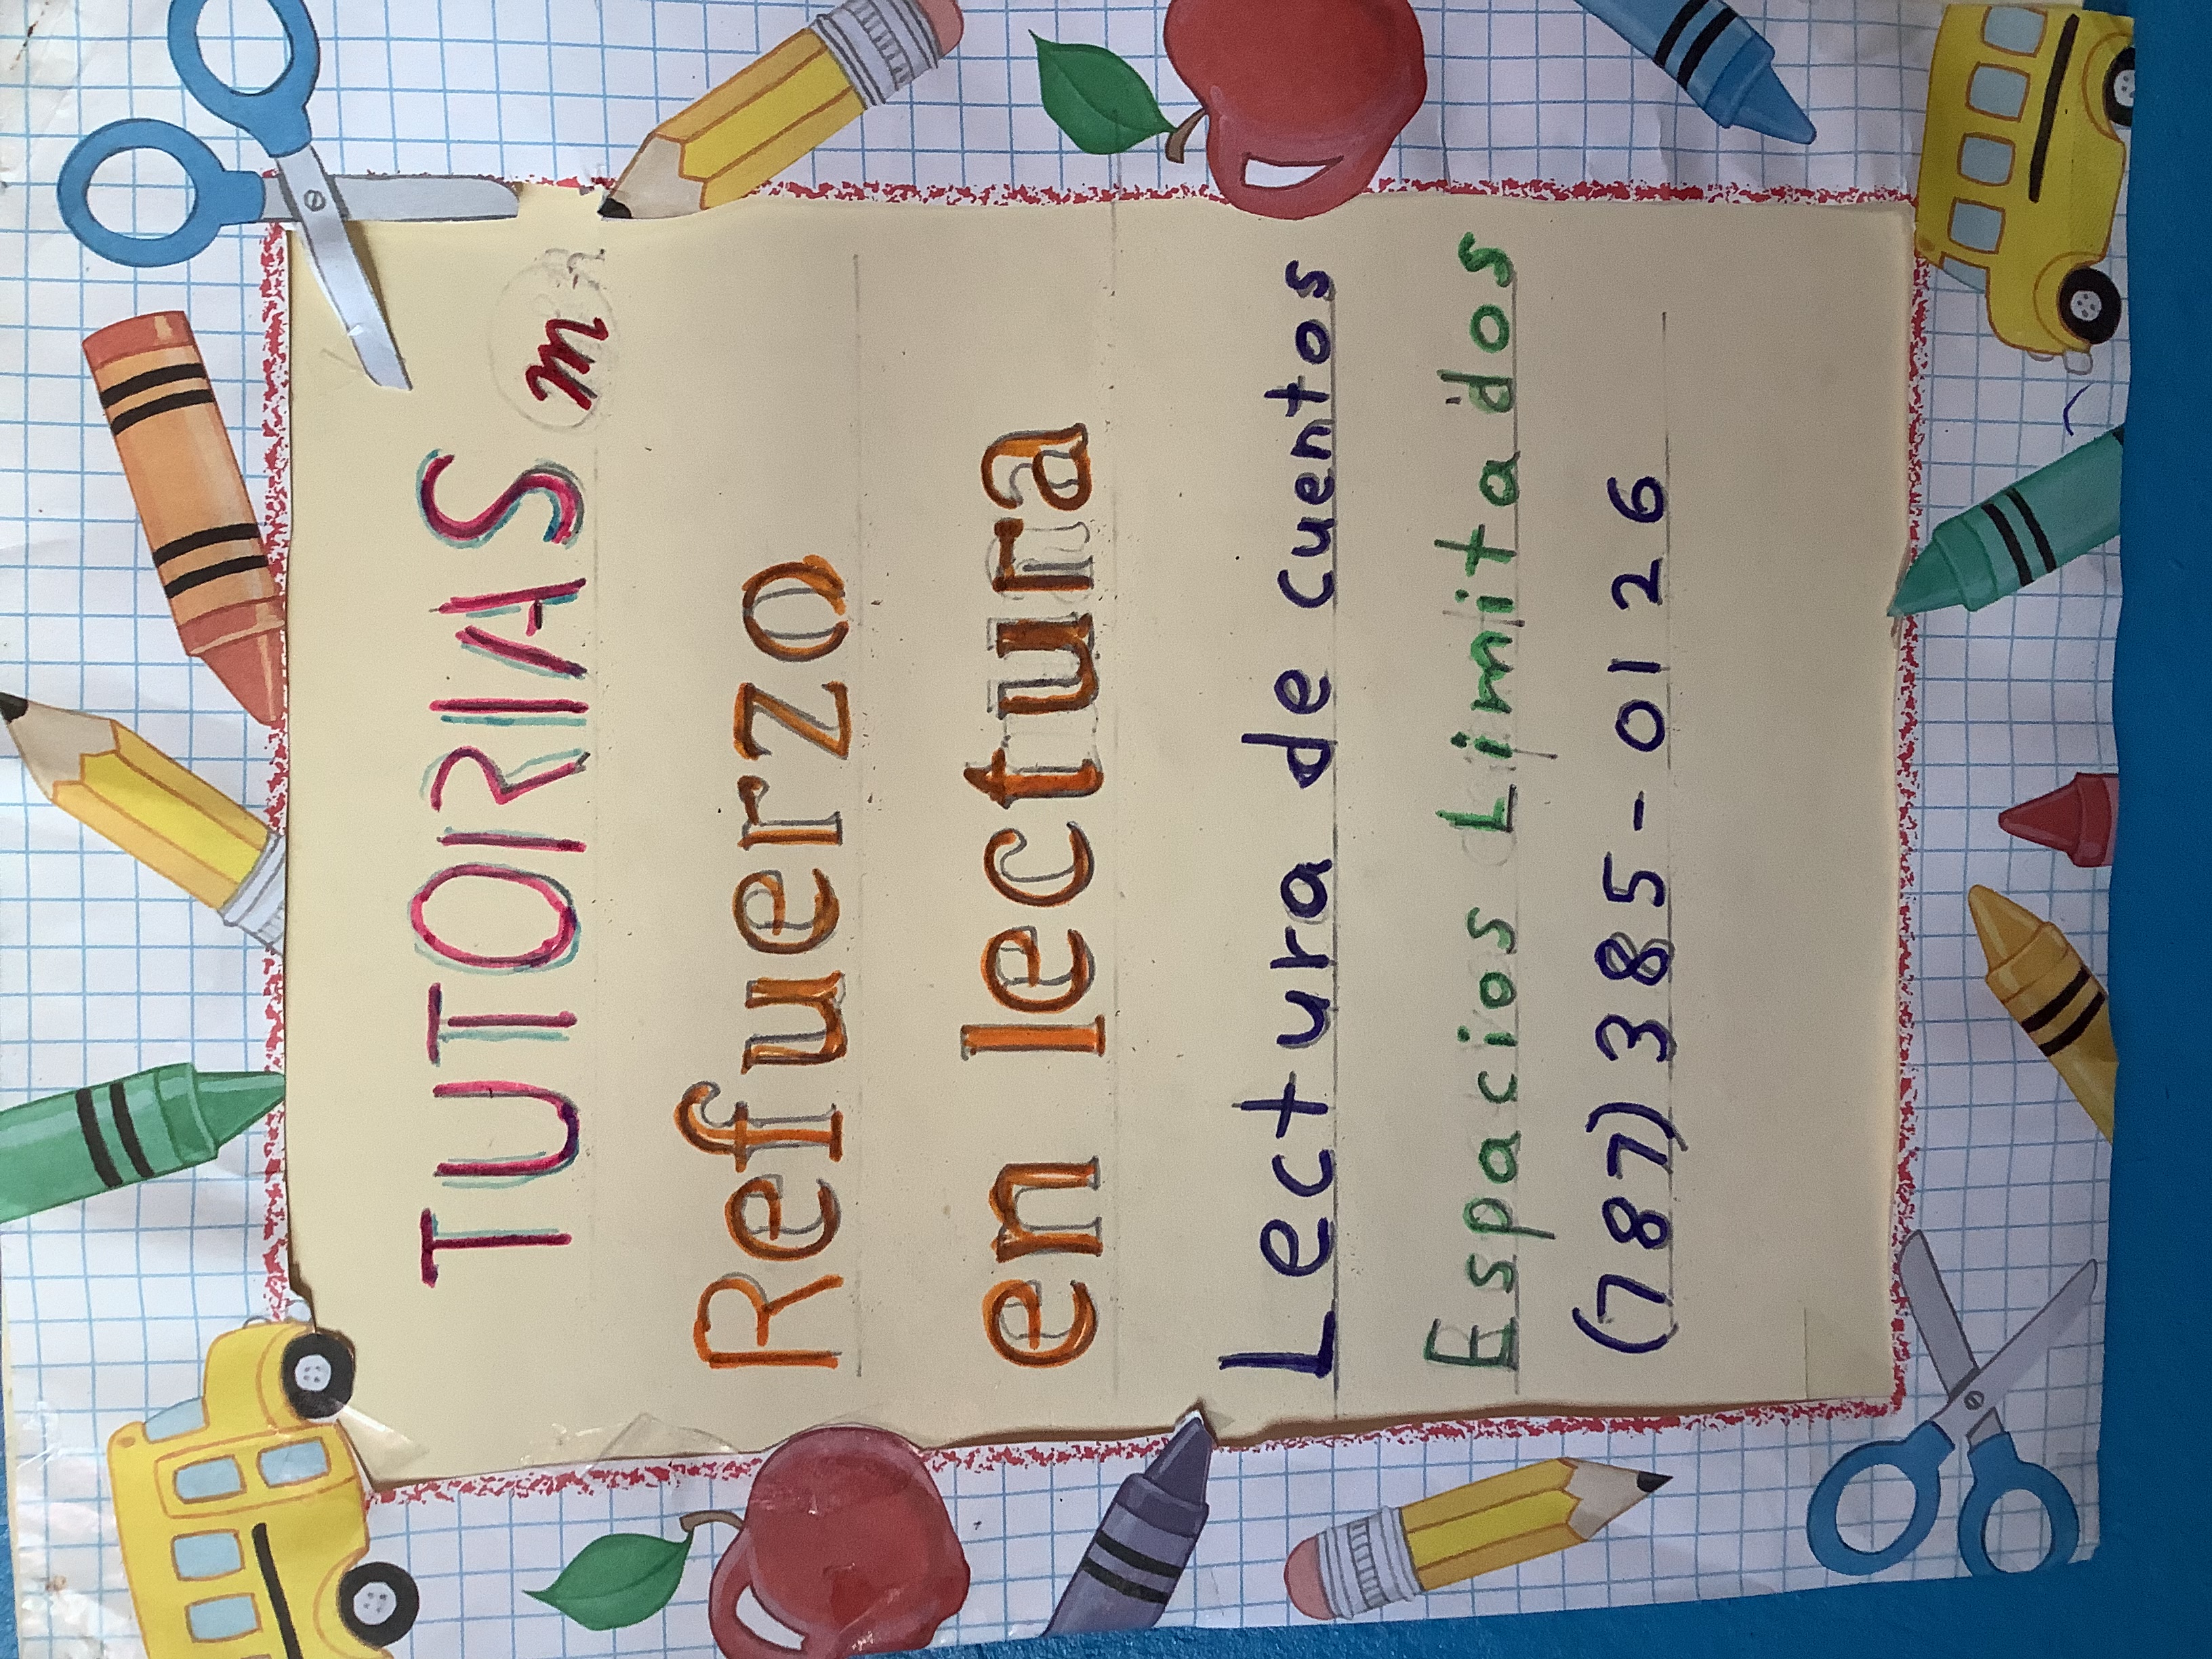 TUTORIAS m
Refuerzo
en lectura
Lectura de cuentos
Espacios Limitados
(787) 385-0126